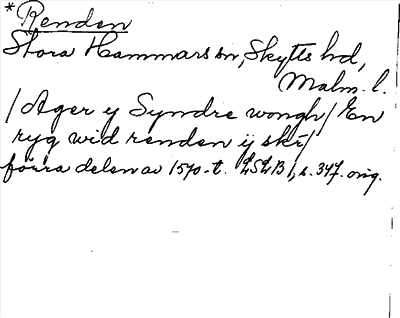 *Renden
Stora Hammars sn, Skytts hd,
Malm. l.
/Ager y Syndre wongh/ En
ryg wid renden ij skr/
förra delen av 1570-t. LSLB 1, s. 347. orig.